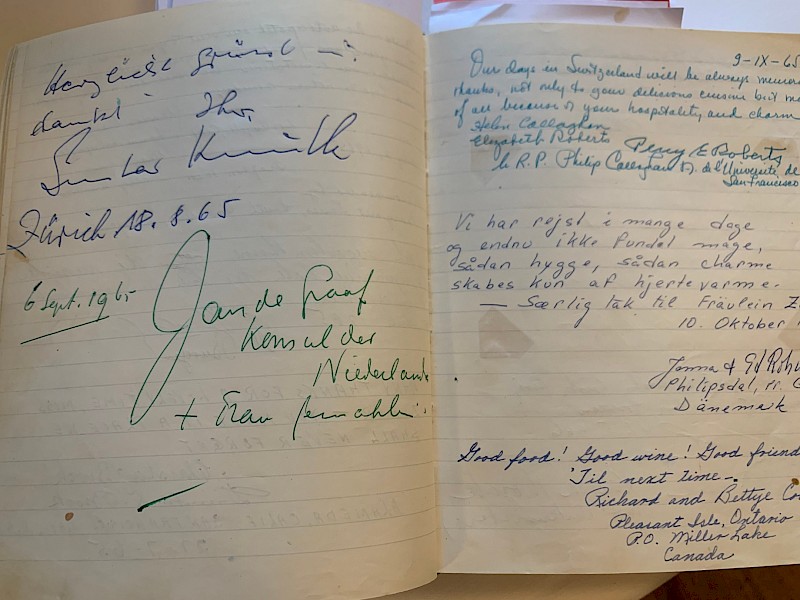 Herzlichst grüsst u.
dankt Ihr
Zürich 18.8.65
6 Sept. 1965
Jan de Graaf
Konsul der
Niederlande
+ Frau Gemahlin
9-IX-65
Our days in Switzerland will be always memor
thanks, not only to your delicious cuisine but mo
of all because of your hospitality and charm
Helen Callaghan
Elizabeth Roberts Percy E Roberts
le R.P. Philip Callaghan s.j. de l'Université de
San Francisco
Vi har rejst i mange dage
og endnu ikke fundet mage,
sådan hygge, sådan charme
skabes kun af hjertevarme.
— Særlig tak til Fräulein Z
10. Oktober 1
Jonna & Ed
Philipsdal, pr. G
Dänemark
Good food! Good wine! Good friend
'Til next time –
Richard and Bettye Co
Pleasant Isle, Ontario
P.O. Miller Lake
Canada